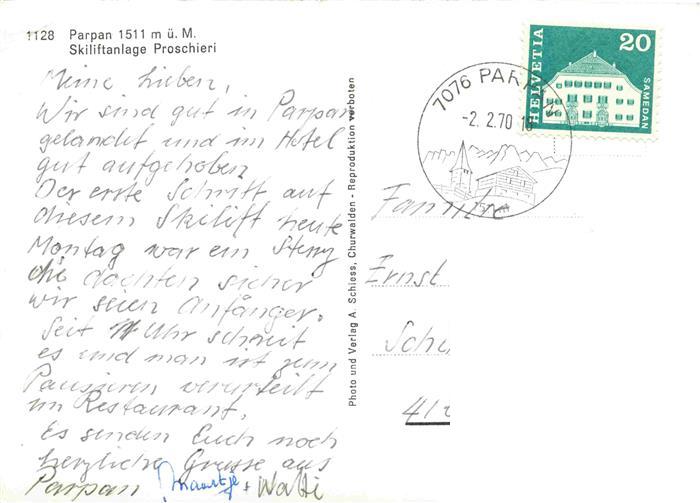 1128 Parpan 1511 m ü. M.
Skiliftanlage Proschieri
Meine Lieben,
Wir sind gut in Parpan
gelandet und im Hotel
gut aufgehoben
Der erste Schritt auf
diesem Skilift heute
Montag war ein Sterz
die dachten sicher
wir seien Anfänger.
Seit 11 Uhr schneit
es und man ist zum
Pausieren verurteilt
im Restaurant.
Es senden Euch noch
herzliche Grüsse aus
Parpan Maartje + Walti
Photo und Verlag A. Schiess, Churwalden - Reproduktion verboten
7076 PARPAN
-2. 2.70
HELVETIA
20
SAMEDAN
Familie
Ernst